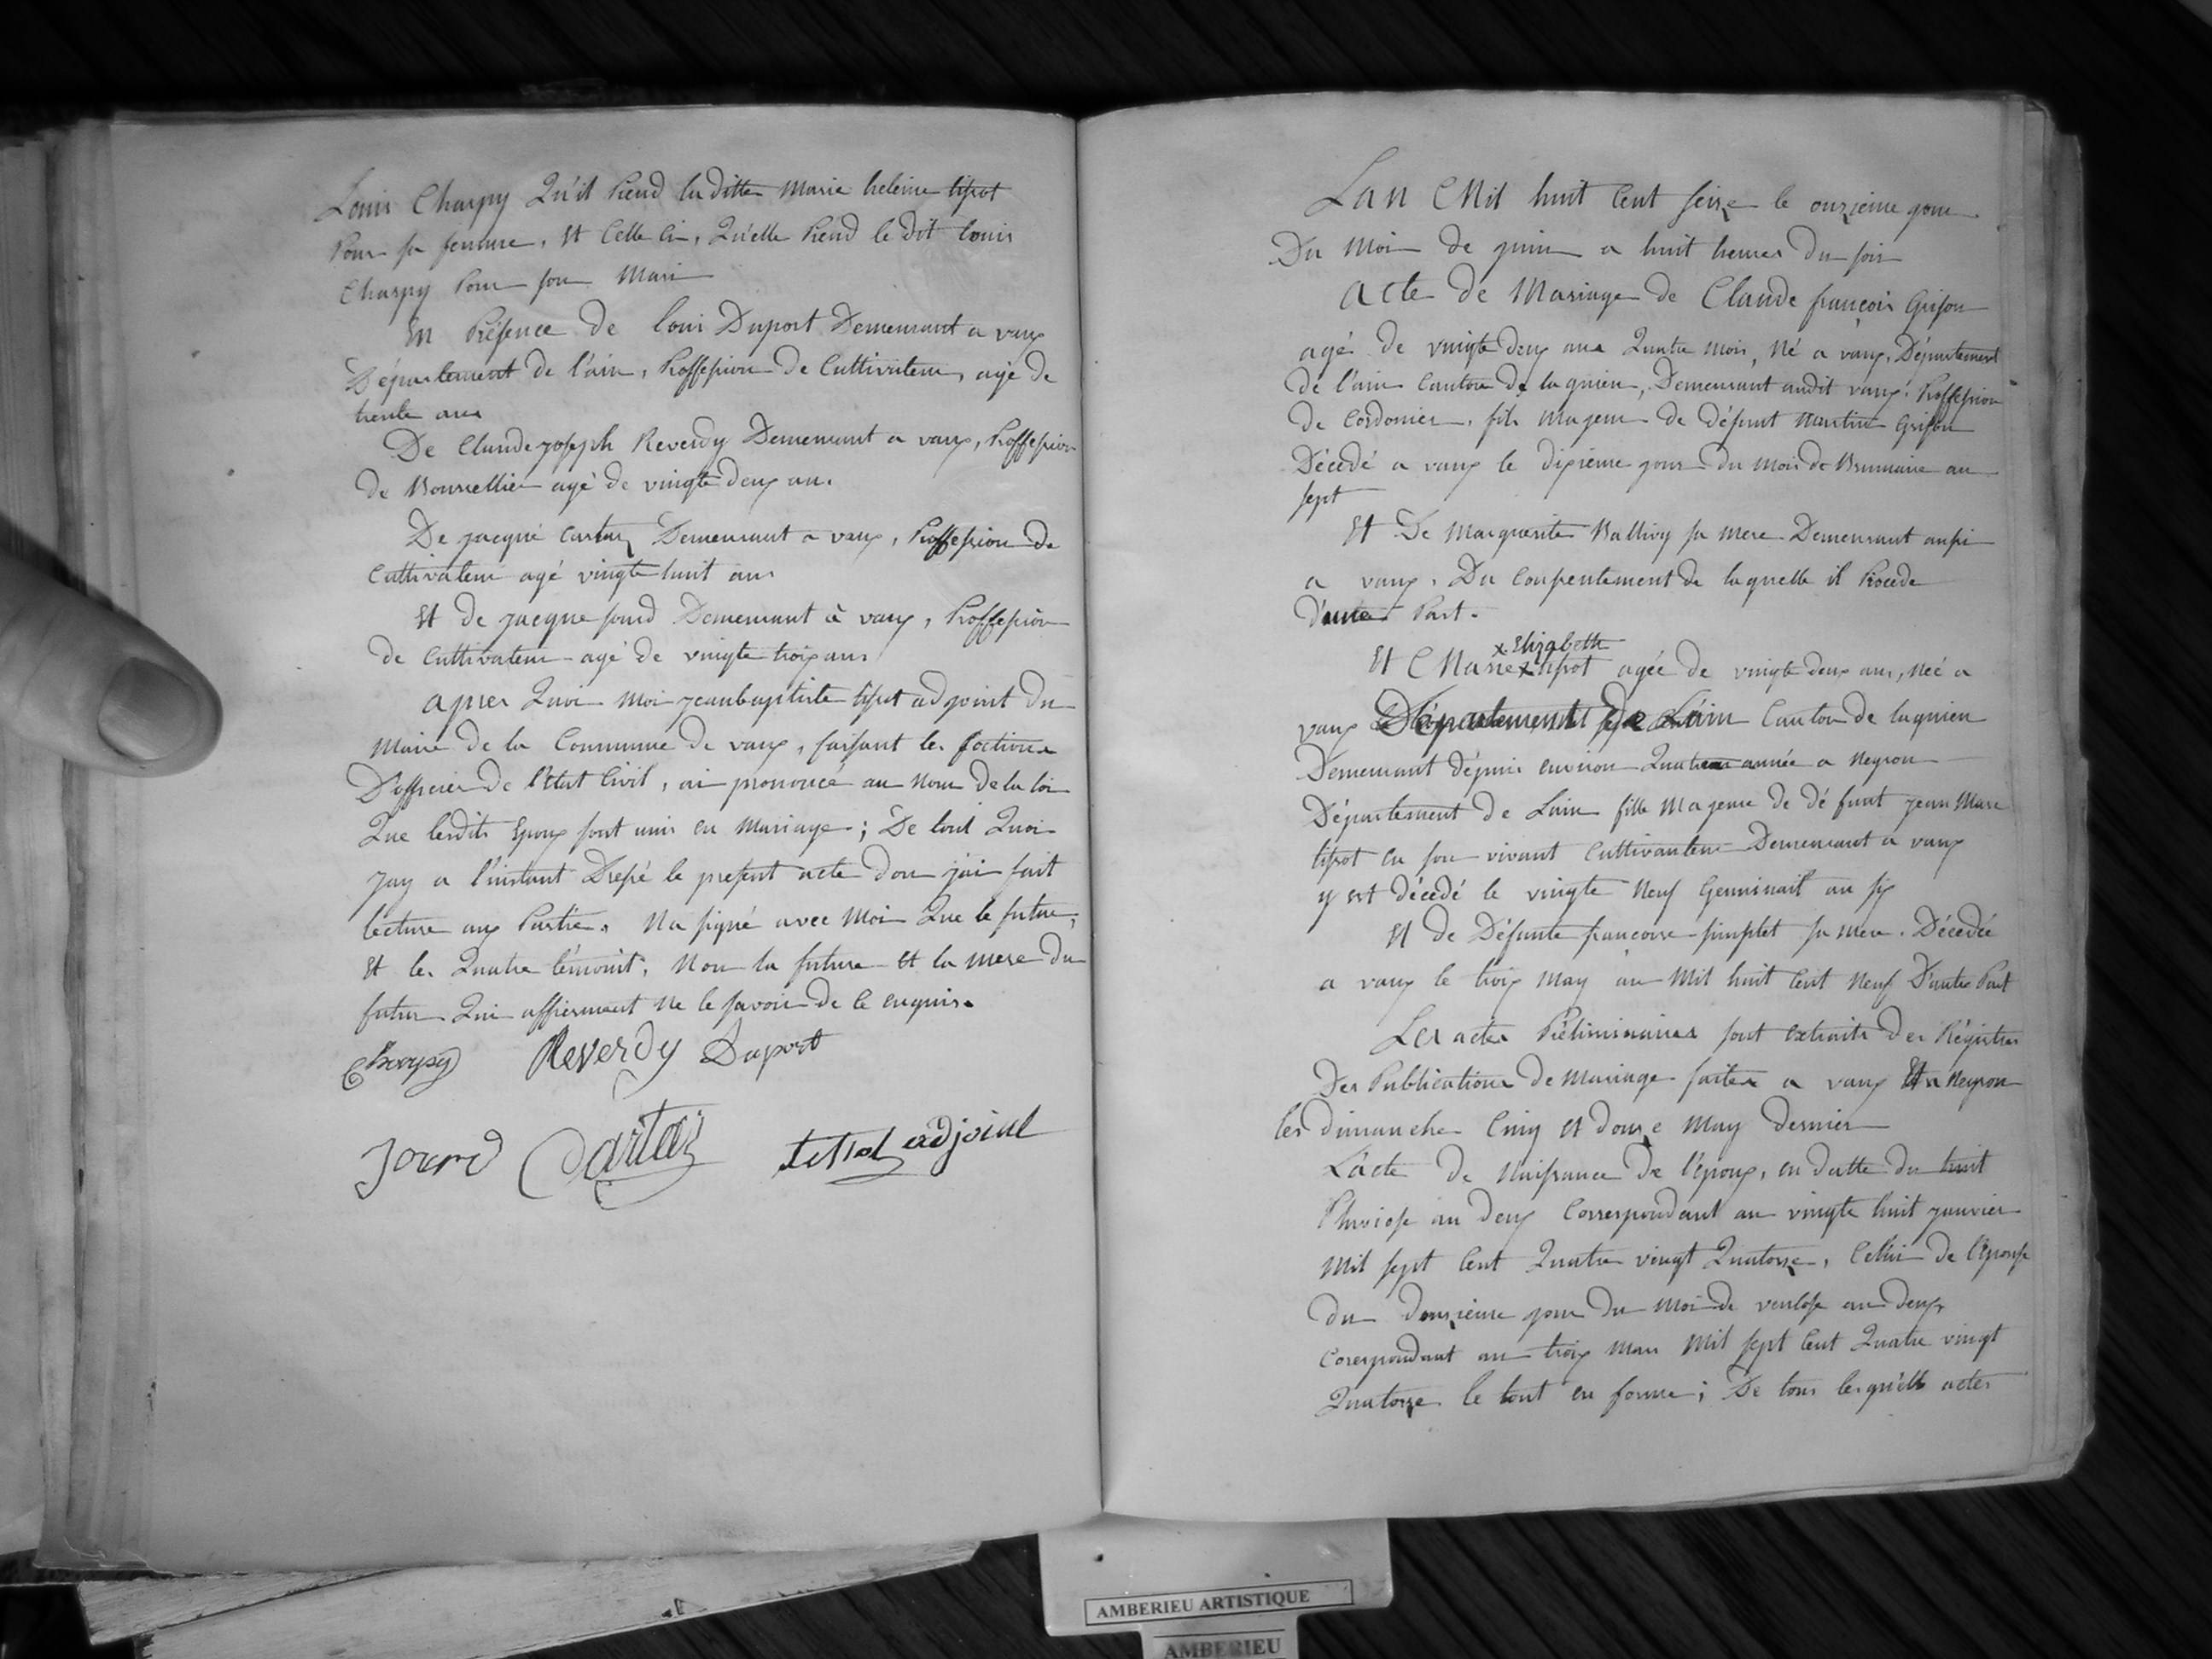 Louis Charpy Qu'il Prend la ditte Marie heleine tissot
Pour sa femme, Et Celle Ci, Qu'elle Prend le dit Louis
Charpy Pour son Mari
En Présence de Louis Duport Demeurant a vaux
Département de l'ain, Proffession de Cultivateur, agé de
trente ans
De Claude joseph Reverdy Demeurant a vaux, Proffession
de Bourrellier agé de vingte deux an.
De jacque Demeurant a vaux, Proffession de
Cultivateur agé vingte huit ans
Et de jacque Demeurant à vaux, Proffession
de Cultivateur agé de vingte trois ans
apres Quoi Moi jeanbaptiste tissot adjoint du
Maire de la Commune de vaux, faisant les foctions
D'officier de l'Etat Civil, ai prononcé au Nom de la loi
Que lesdits Epoux sont unis en Mariage; De tout Quoi
jay a l'instant Dressé le present acte don j'ai fait
lecture aux Parties. Na signé avec Moi Que le futur,
Et les Quatre témoint, Non la future Et la mere du
futur Qui affirment Ne le savoir de ce enquis.
Charpy Reverdy Duport
tissot adjoint
Lan Mil huit Cent seize le onzieme jour
Du Moi de juin a huit heures du soir
Acte de Mariage de Claude françois Grison
agé de vingte deux ans Quatre mois, Né a vaux, Département
de l'ain Canton de lagnieu, Demeurant audit vaux, Proffession
de Cordonier, fils Majeur de défunt Martin Grison
Décédé a vaux le dixieme jour du Mois de Brumaire an
sept
Et De Marguerite Ballivy sa Mere Demeurant aussi
a vaux, Du Conssentement de laquelle il Procede
d'une Part.
x Elizabeth
Et Marie x tissot agée de vingte deux ans, Neé a
vaux Département de Lain Canton de lagnieu
Demeurant dépuis environ Quatre année a Neyron
Département de Lain fille Majeure de défunt jean Marie
tissot en son vivant Cultivateur Demeurant a vaux
y est décedé le vingte Neuf Germinail an six
Et de Défunte francoise simplet sa Mere. Décedée
a vaux le trois May an Mil huit Cent Neuf D'autre Part
Les actes Préliminaires sont extraits des Régistres
Des Publications de Mariage faites a vaux Et a Neyron
les dimanche Cinq et douze May dernier
L'acte de Naissance de l'époux, en datte du huit
Pluviose an deux Correspondant au vingte huit janvier
Mil sept Cent Quatre vingt Quatorze, Cellui de l'Epouse
du douzieme jour du Moi de ventose an deux
Corespondant au trois Mars Mil sept Cent Quatre vingt
Quatorze le tout en forme; De tous lesquells actes
AMBERIEU ARTISTIQUE
AMBERIEU